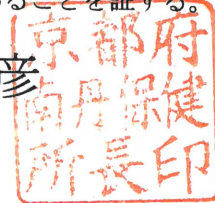 ることを証する。
京都府
南丹保健
所長印